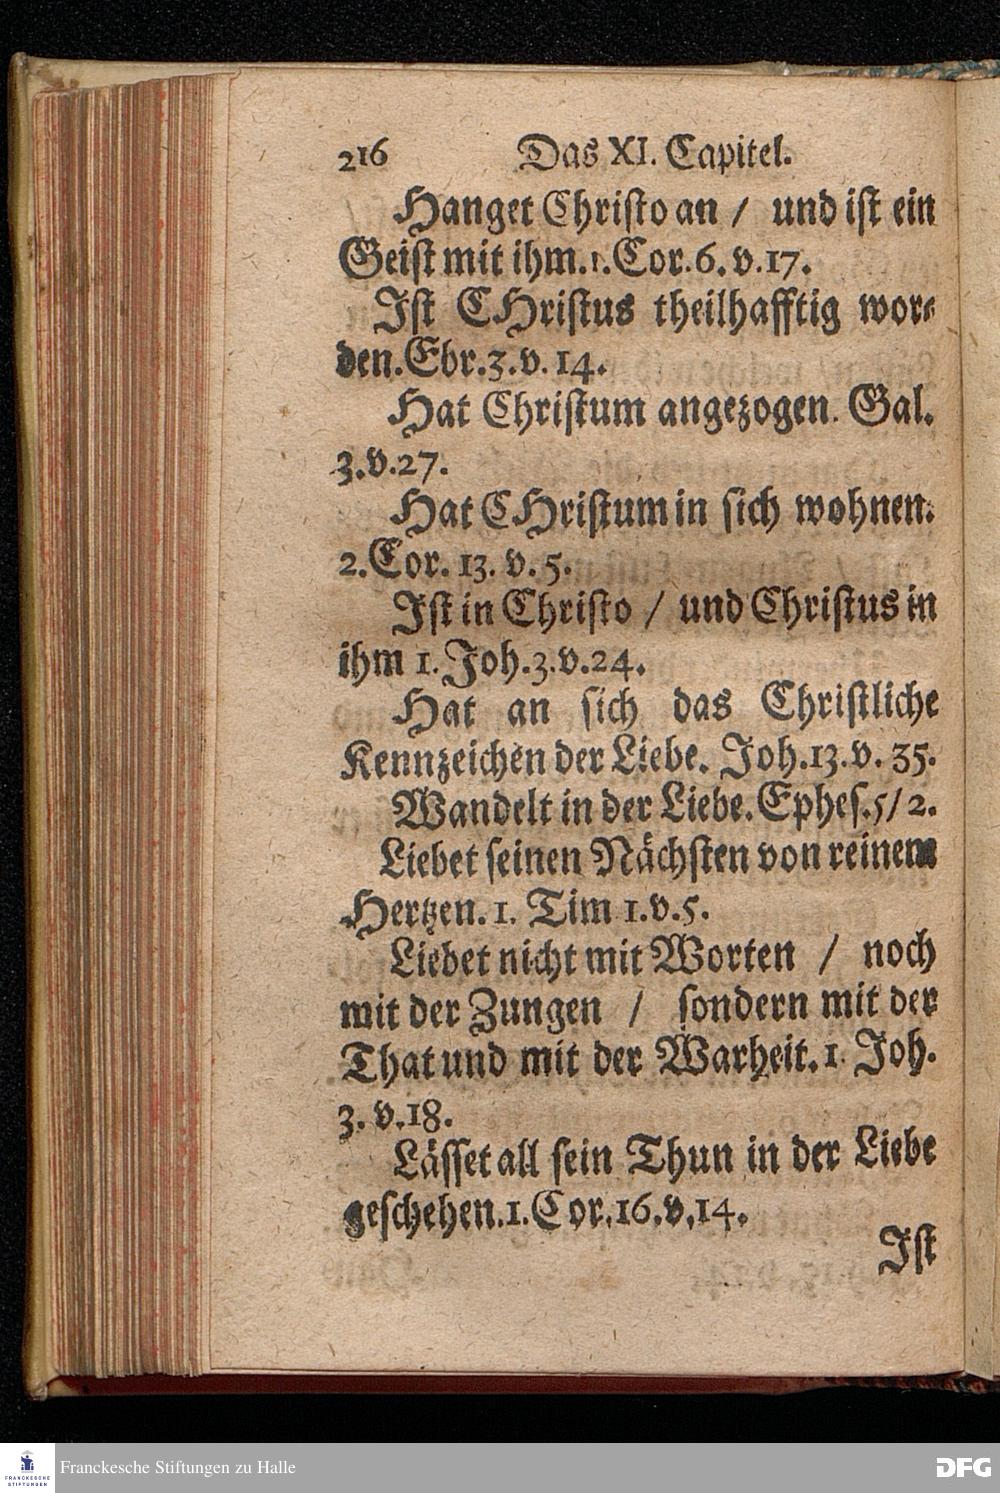 216 Das XI. Capitel.
Hanget Christo an / und ist ein
Geist mit ihm. 1. Cor. 6. v. 17.
Ist CHristus theilhafftig wor-
den. Ebr. 3. v. 14.
Hat Christum angezogen. Gal.
3. v. 27.
Hat CHristum in sich wohnen.
2. Cor. 13. v. 5.
Ist in Christo / und Christus in
ihm 1. Joh. 3. v. 24.
Hat an sich das Christliche
Kennzeichen der Liebe. Joh. 13. v. 35.
Wandelt in der Liebe. Ephes. 5/2.
Liebet seinen Nächsten von reinem
Hertzen. 1. Tim 1. v. 5.
Liebet nicht mit Worten / noch
mit der Zungen / sondern mit der
That und mit der Warheit. 1. Joh.
3. v. 18.
Lässet all sein Thun in der Liebe
geschehen. 1. Cor. 16. v. 14.
Ist
FRANCKESCHE
STIFTUNGEN
Franckesche Stiftungen zu Halle
DFG